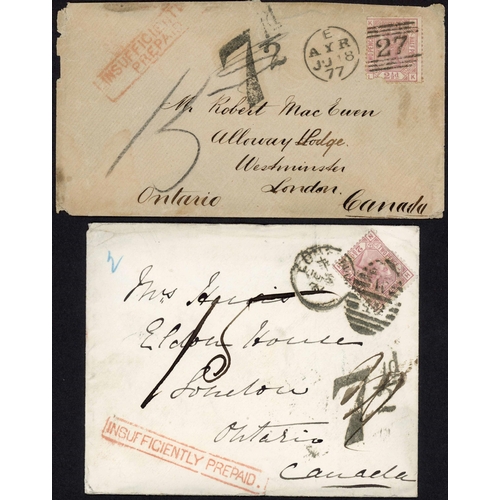 INSUFFICIENTLY
PREPAID.
7 1/2 d
15
E
AYR
JU 18
77
27
Mr Robert MacEwen
Alloway Lodge.
Westminster
London.
Ontario Canada
2
Mrs Harris
Eldon House
15
London
7 1/2 d
Ontario
INSUFFICIENTLY PREPAID.
Canada